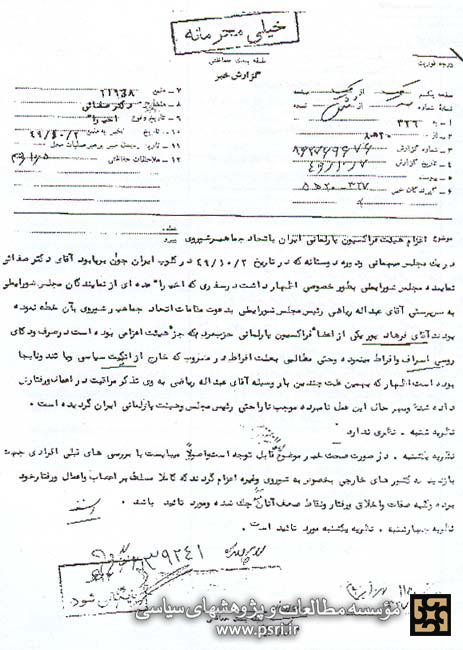 خیلی محرمانه
طبقه بندی حفاظتی
گزارش خبر
درجه فوریت
صفحه یکم از صفحه
شماره نسخه از نسخه
۱ـ به ۳۲۶
۲ـ از ۲۰ ه ۵
۳ـ شماره گزارش
۴ـ تاریخ گزارش
۵ـ پیوست
۶ـ گیرندگان خبر ۳۲۷ - ۲۰ ه ۵
۷ـ منبع ۲۱۹۳۸
۸ـ منشاء دکتر صفائی
۹ـ تاریخ وقوع اخیرا"
۱۰ـ تاریخ خبر به منبع ۴۹/۱۰/۲
۱۱ـ تاریخ رسیدن خبر برهبر عملیات محل
۱۲ـ ملاحظات حفاظتی ندارد
موضوع اعزام هیئت فراکسیون پارلمانی ایران باتحاد جماهیر شوروی
در یک مجلس میهمانی و دوره دوستانه که در تاریخ ۴۹/۱۰/۲ در کلوپ ایران جوان برپا بود آقای دکتر صفائی
نماینده مجلس شورایملی بطور خصوصی اظهار داشت در سفری که اخیرا" عده ای از نمایندگان مجلس شورایملی
به سرپرستی آقای عبداله ریاضی رئیس مجلس شورایملی بدعوت مقامات اتحاد جماهیر شوروی بآن خطه نموده
بودند آقای فرهاد پور یکی از اعضاء فراکسیون پارلمانی حزب مردم که جزء هیئت اعزامی بوده است در صرف ودکای
روسی اسراف و افراط مینموده و حتی مطالبی بعلت افراط در مشروب که خارج از اتیکت سیاسی و یا تند و نابجا
بوده است اظهار که بهمین علت چندین بار وسیله آقای عبداله ریاضی به وی تذکر مراقبت در اعمال و رفتارش
داده شد و بهر حال این عمل نامبرده موجب ناراحتی رئیس مجلس و هیئت پارلمانی ایران گردیده است .
نظریه شنبه . نظری ندارد
نظریه یکشنبه . در صورت صحت خبر موضوع قابل توجه است و اصولا میبایست با بررسی های قبلی افرادی جهت
بازدید به کشورهای خارجی بخصوص به شوروی و غیره اعزام گردند که کاملا مسلط بر اعصاب و اعمال و رفتار خود
بوده و کلیه صفات و اخلاق و رفتار و نقاط ضعف آنان چک شده و مورد تائید باشد .
نظریه چهارشنبه . نظریه یکشنبه مورد تائید است .
۳۹۲۴۱
بایگانی شود
مؤسسه مطالعات و پژوهشهای سیاسی
www.psri.ir